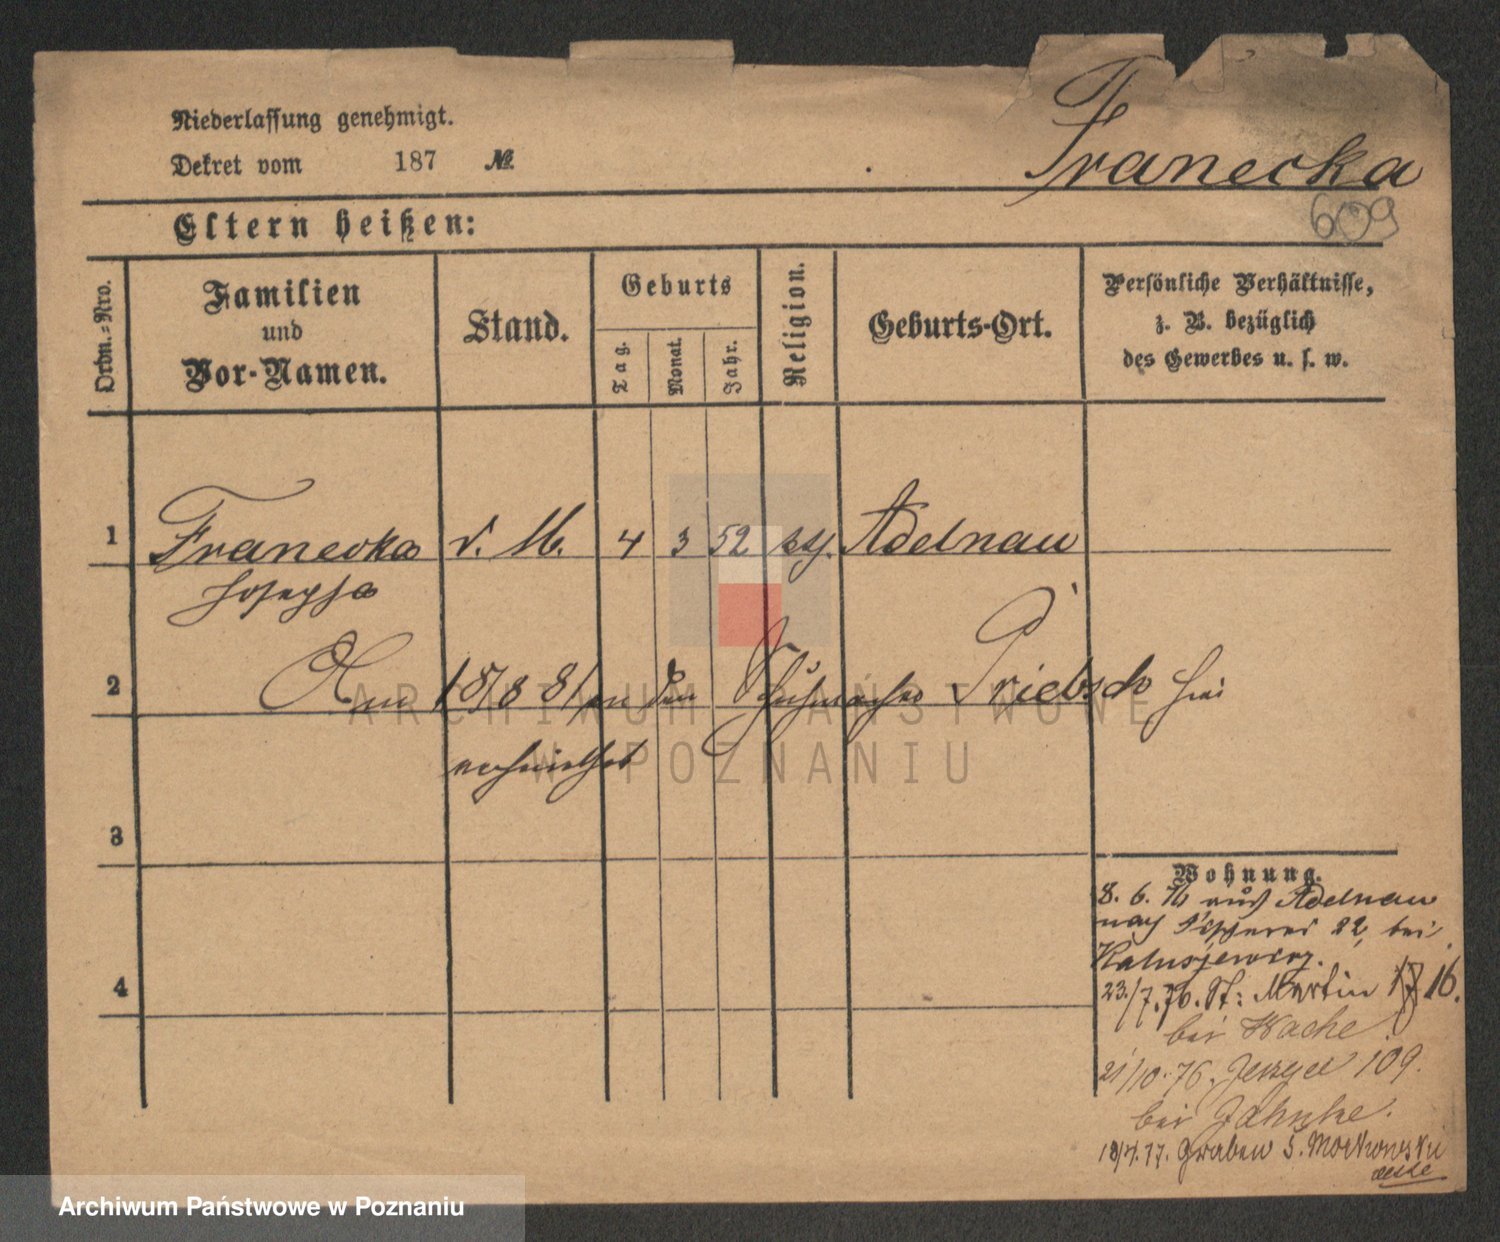 Niederlassung genehmigt.
Dekret vom 187 №
Franecka
609
Eltern heißen:
Ordn.=Nro.
Familien
und
Vor-Namen.
Stand.
Geburts
Tag.
Monat.
Jahr.
Religion.
Geburts-Ort.
Persönliche Verhältnisse,
z. B. bezüglich
des Gewerbes u. s. w.
1 Franecka d. M. 4 3 52 Adelnau
Josepha
2 Am 18/8 81 an den Schuhmacher Priebsch hier
verheirathet
3
4
Wohnung.
8. 6. 76 aus Adelnau
nach Fischerei 22, bei
23./7. 76. St: Martin 17 16.
bei Wache.
21/10. 76. 109.
bei Jahnke.
18/4. 77. Graben 5. Morkowski
ARCHIWUM PAŃSTWOWE
W POZNANIU
Archiwum Państwowe w Poznaniu